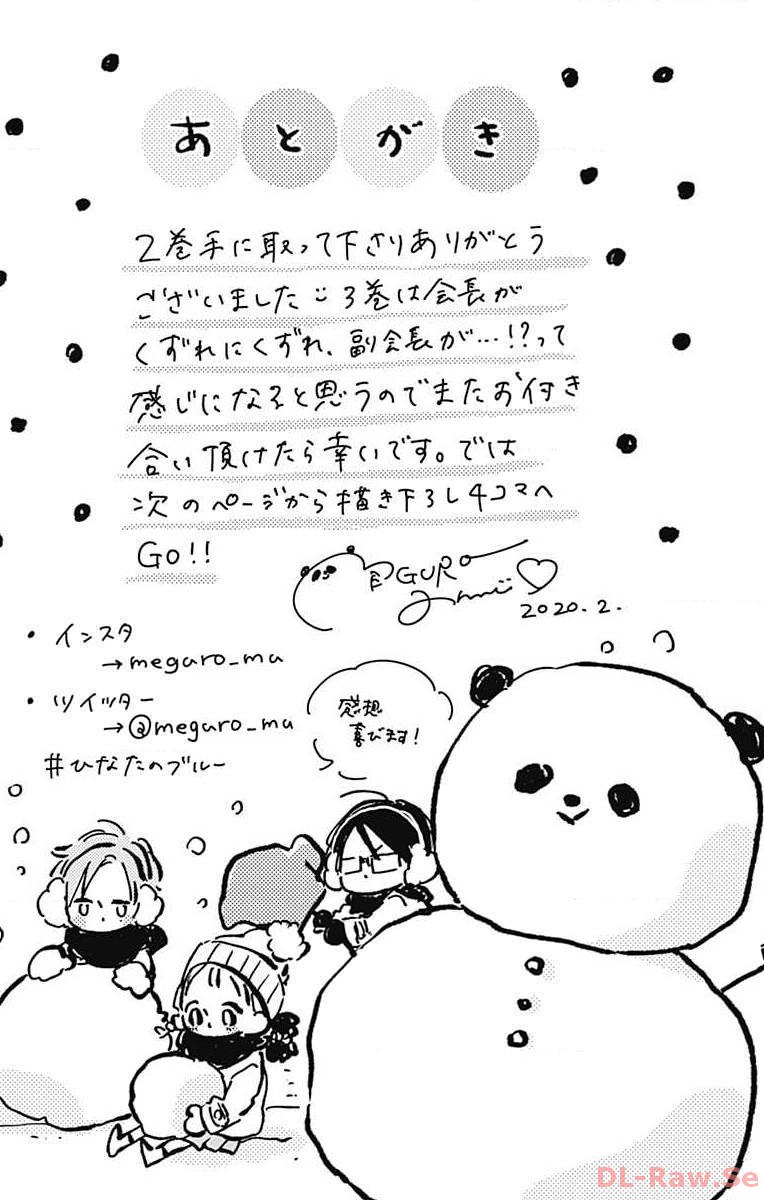 あとがき
2巻手に取って下さりありがとう
ございました 3巻は会長が
くずれにくずれ、副会長が…!?って
感じになると思うのでまたお付き
合い頂けたら幸いです。では
次のページから描き下ろし4コマへ
GO!!
MEGURO
2020.2.
・インスタ
→meguro_mu
・ツイッター
→@meguro_mu
#ひなたのブルー
感想
喜びます!
DL-Raw.Se